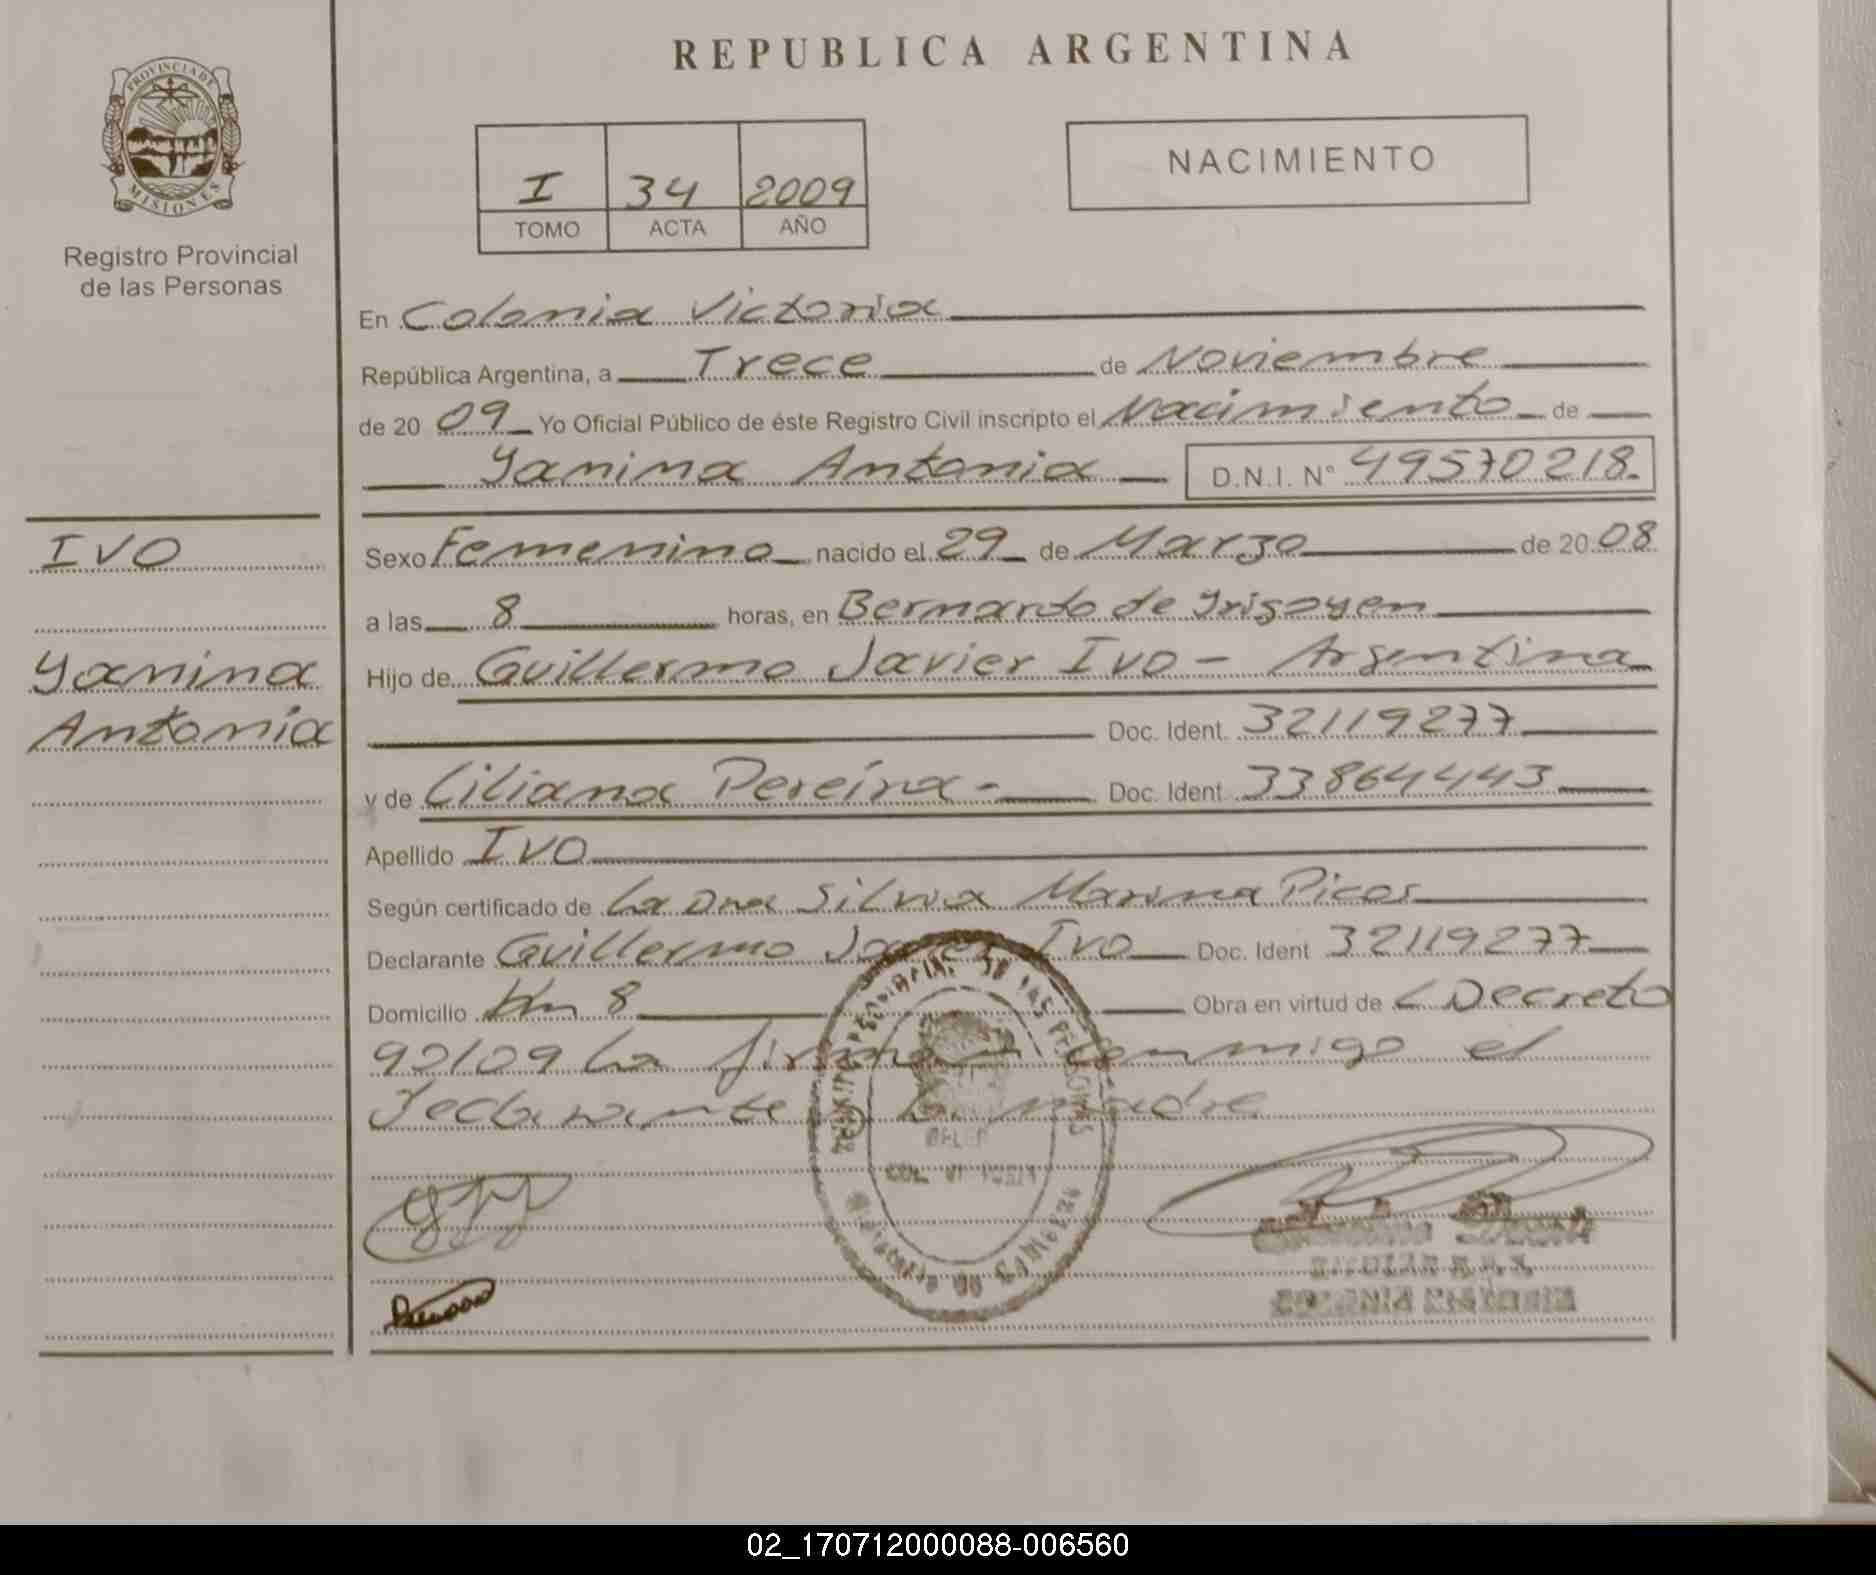 REPUBLICA ARGENTINA
PROVINCIA DE
MISIONES
Registro Provincial
de las Personas
NACIMIENTO
I 34 2009
TOMO ACTA AÑO
En Colonia Victoria
República Argentina, a Trece de Noviembre
de 20 09 Yo Oficial Público de éste Registro Civil inscripto el Nacimiento de
Yanina Antonia D.N.I. N° 49570218
IVO
Yanina
Antonia
Sexo Femenino nacido el 29 de Marzo de 20 08
a las 8 horas, en Bernardo de Yrigoyen
Hijo de Guillermo Javier Ivo - Argentina
Doc. Ident. 32119277
y de Liliana Pereira - Doc. Ident. 33864443
Apellido IVO
Según certificado de La Dra Silvia Marina Picos
Declarante Guillermo Javier Ivo Doc. Ident 32119277
Domicilio Km 8 Obra en virtud de Decreto
90/09 La firman conmigo el
declarante la madre
02_170712000088-006560